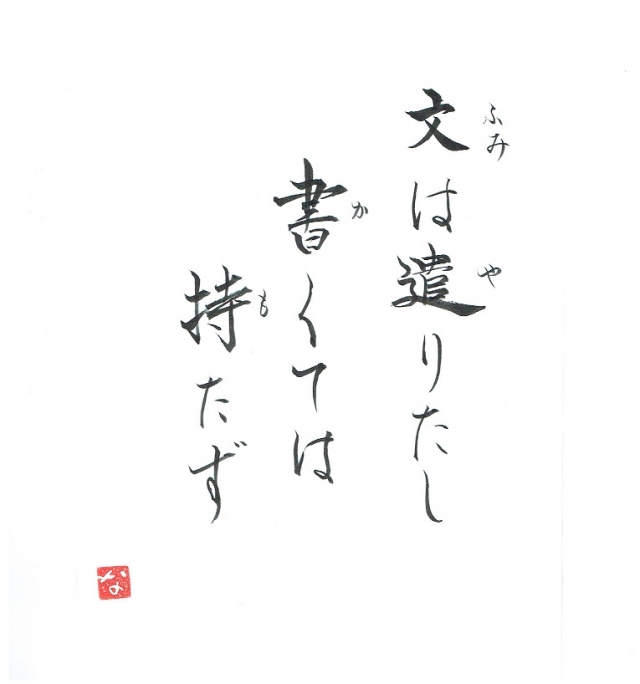 ふみ や
文は遣りたし
か
書くては
も
持たず
な